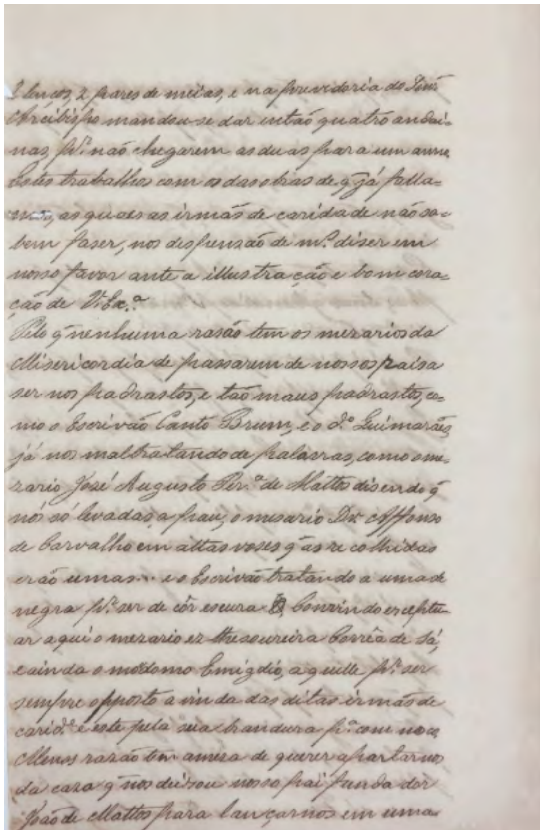 2 lenços, 2 pares de meias, e na previdoria do Snr
Arcibispo mandou-se dar então quatro andai-
nas, pr. não chegarem as duas para um anno
Estes trabalhos com os das obias de q já falla-
mos, as quaes as irmãs de caridade não sa-
bem faser, nos dispensão de m.to diser em
nosso favor ante a illustração e bom cora-
ção de V. Ex.a
Pelo q nenhuma rasão tem os mezarios da
Misericordia de passarem de nossos pais a
ser nos padrastos, e tão maus padrastos, co-
mo o Escrivão Canto Brum, e o d.o Guimarães,
já nos maltratando de palavras, como o me-
zario José Augusto Per.a de Mattos disendo q
nós só levadas a pau, o mesario Dr. Affonso
de Carvalho em altas voses q as recolhidas
erão umas... e o Escrivão tratando a uma de
negra pr. ser de côr escura, convindo exceptu-
ar aqui o mezario ex thesoureira Corrêa de Sá,
e ainda o mordomo Emigdio, aquelle pr. ser
sempre opposto a vinda das ditas irmãs de
carid.e e este pela sua brandura p.a com nosco
Menos razão tem a meza de querer apartarnos
da caza q nos deixou nosso pai fundador
João de Mattos para lançarnos em uma